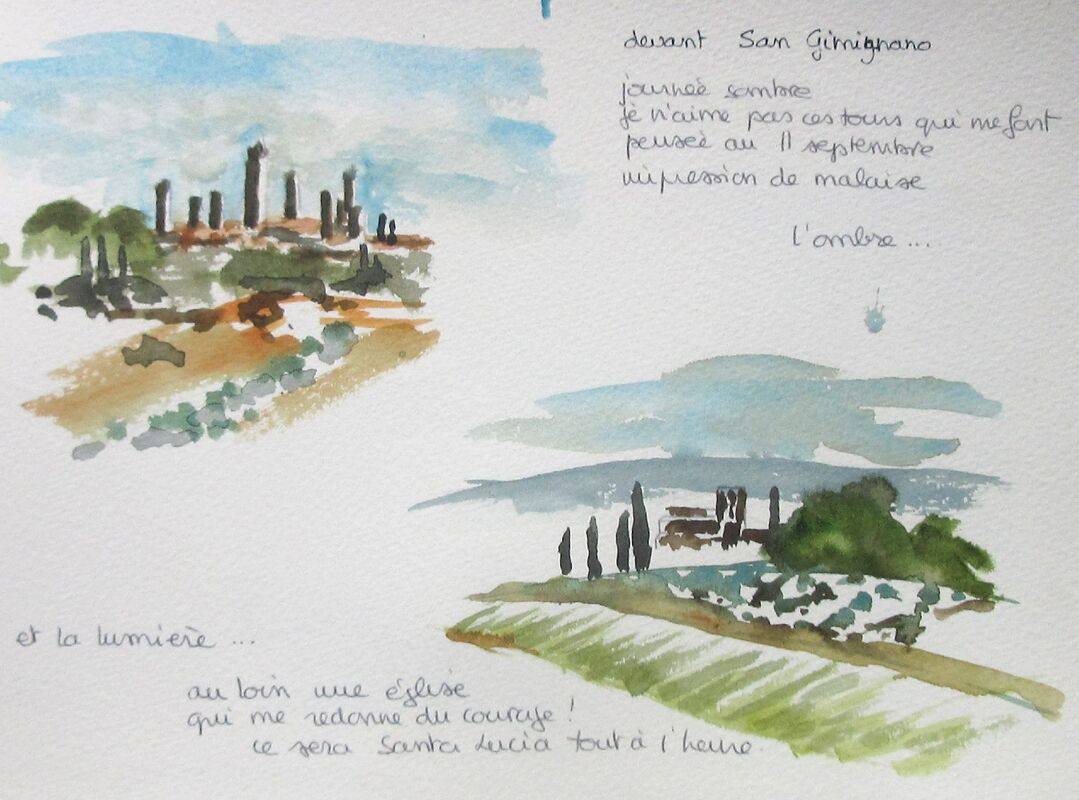 devant San Gimignano
journée sombre
je n'aime pas ces tours qui me font
pensée au 11 septembre
impression de malaise
l'ombre ...
et la lumière ...
au loin une église
qui me redonne du courage !
ce sera Santa Lucia tout à l'heure.